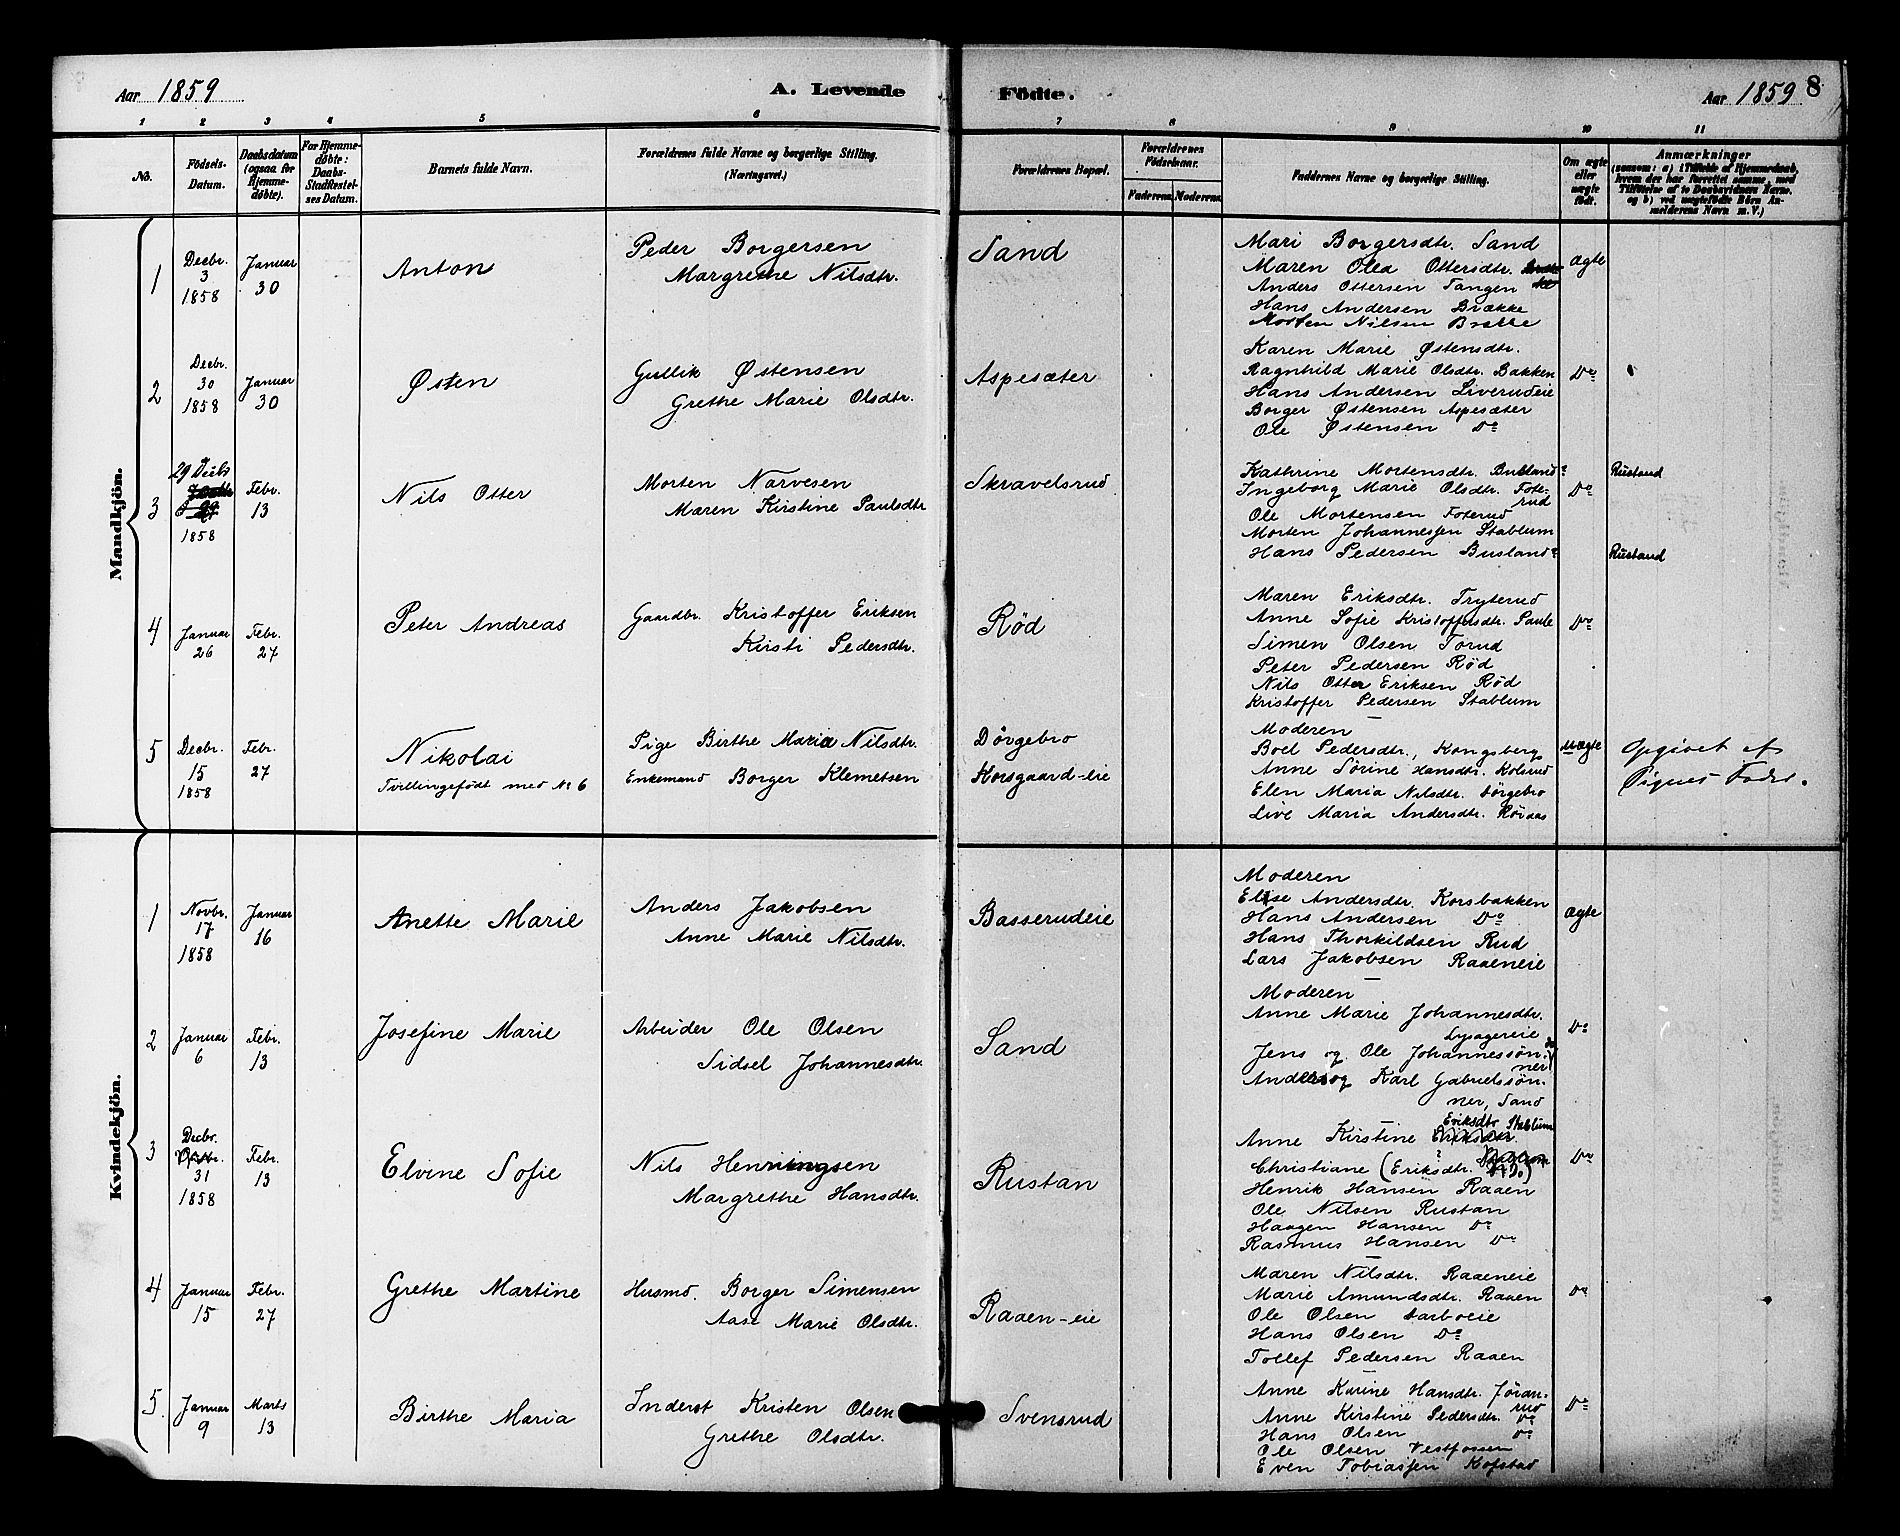 Aar 1859
A. Levende
Födte.
Aar 1859 8
1 2 3 4 5 6 7 8 9 10 11
No.
Födsels-
Datum.
Daabsdatum
(ogsaa for
Hjemme-
døbte).
For Hjemme-
døbte:
Daabs-
Stadfæstel-
ses Datum.
Barnets fulde Navn.
Forældrenes fulde Navne og borgerlige Stilling.
(Næringsvei.)
Forældrenes Bopæl.
Forældrenes
Födselsaar.
Faderens. Moderens.
Faddernes Navne og borgerlige Stilling.
Om ægte
eller
uægte
födt.
Anmærkninger
(saasom: a) i Tilfælde af Hjemmedaab,
hvem der har forrettet samme, med
Tilföielse af to Daabsvidners Navne.
og b) ved uægtefödte Börn An-
melderens Navn m. V.)
Mandkjön.
1
Decbr.
3
1858
Januar
30
Anton
Peder Borgersen
Margrethe Nilsdtr.
Sand
Mari Borgersdtr. Sand
Maren Olea Ottersdtr.
Anders Ottersen Tangen
Hans Andersen Brække
Morten Nilsen Brække
ægte
2
Decbr.
30
1858
Januar
30
Østen
Gullik Østensen
Grethe Marie Olsdtr.
Aspesæter
Karen Marie Østensdtr.
Ragnhild Marie Olsdtr. Bakken
Hans Andersen Liverudeie
Borger Østensen Aspesæter
Ole Østensen Do
Do
3
29 Decbr
1858
Febr.
13
Nils Otter
Morten Narvesen
Maren Kirstine Paulsdtr
Skravelsrud
Kathrine Mortensdtr. Busland?
Ingeborg Marie Olsdtr. Fote-
rud
Ole Mortensen Foterud
Morten Johannessen Stablum
Hans Pedersen Busland?
Do
Rustand
Rustand
4
Januar
26
Febr.
27
Peter Andreas
Gaardbr. Kristoffer Eriksen
Kirsti Pedersdtr.
Rød
Maren Eriksdtr. Tryterud
Anne Sofie Kristoffersdtr. Saule
Simen Olsen Torud
Peter Pedersen Rød
Nils Otter Eriksen Rød
Kristoffer Pedersen Stablum
Do
5
Decbr.
15
1858
Febr.
27
Nikolai
Tvillingefödt med No 6
Pige Birthe Maria Nilsdtr.
Enkemand Borger Klemetsen
Dørgebro
Korsgaard-eie
Moderen
Boel Pedersdtr, Kongsberg
Anne Sørine Hansdtr. Kolsrud
Elen Maria Nilsdtr. Dørgebro
Live Maria Andersdtr. Røraas
uægte
Opgivet af
Pigens Fader.
Kvindekjön.
1
Novbr.
17
1858
Januar
16
Anette Marie
Anders Jakobsen
Anne Marie Nilsdtr.
Basserudeie
Moderen
Elise Andersdtr. Korsbakken
Hans Andersen Do
Hans Thorkildsen Rud
Lars Jakobsen Raaeneie
ægte
2
Januar
6
Febr.
13
Josefine Marie
Arbeider Ole Olsen
Sidsel Johannesdtr.
Sand
Moderen
Anne Marie Johannesdtr.
Lysagereie
Jens og Ole Johannessøn-
ner
Anders og Karl Gabrielssøn-
ner, Sand
Do
3
Decbr.
31
1858
Febr.
13
Elvine Sofie
Nils Henningsen
Margrethe Hansdtr.
Rustan
Eriksdtr Stablum
Anne Kirstine
Christiane (Eriksdtr.? Do)
Henrik Hansen Raaen
Ole Nilsen Rustan
Haagen Hansen Do
Rasmus Hansen Do
Do
4
Januar
15
Febr.
27
Grethe Martine
Husmd. Borger Simensen
Aase Marie Olsdtr.
Raaen-eie
Maren Nilsdtr. Raaeneie
Marie Amundsdtr. Raaen
Ole Olsen Darboeie
Hans Olsen Do
Tollef Pedersen Raaen
Do
5.
Januar
9
Marts
13
Birthe Maria
Inderst Kristen Olsen
Grethe Olsdtr.
Svensrud
Anne Karine Hansdtr. Jöran-
rud
Anne Kirstine Pedersdtr. Do
Hans Olsen Do
Ole Olsen Vestfossen
Even Tobiassen Kofstad
Do